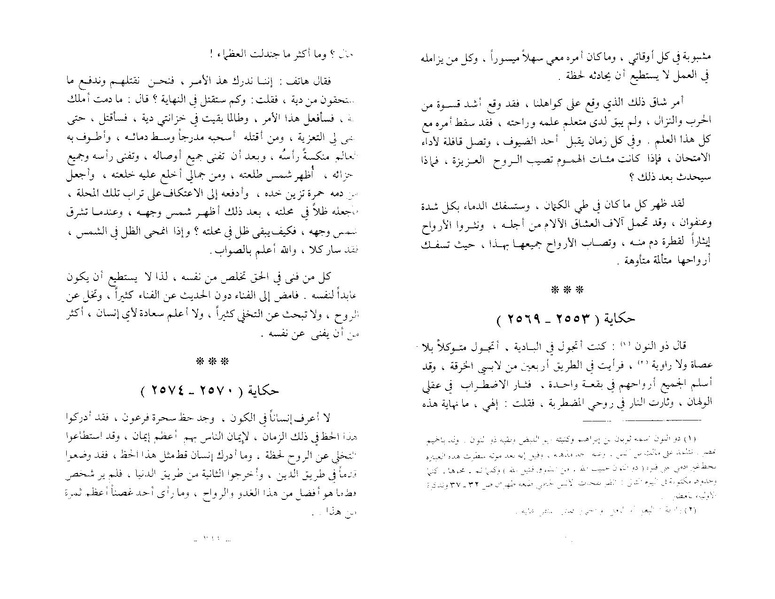 مشبوبة في كل أوقاتي ، وما كان أمره معي سهلاً ميسوراً ، وكل من يزامله
في العمل لا يستطيع أن يحادثه لحظة .
أمر شاق ذلك الذي وقع على كواهلنا ، فقد وقع أشد قسوة من
الحرب والنزال ، ولم يبق لدى متعلم علمه وراحته ، فقد سقط أمره مع
كل هذا العلم . وفي كل زمان يقبل أحد الضيوف ، وتصل قافلة لأداء
الامتحان ، فإذا كانت مئات الهموم تصيب الروح العزيزة ، فماذا
سيحدث بعد ذلك ؟
لقد ظهر كل ما كان في طي الكتمان ، وستسفك الدماء بكل شدة
وعنفوان ، وقد تحمل آلاف العشاق الآلام من أجله ، ونثروا الأرواح
إيثاراً لقطرة دم منه ، وتصاب الأرواح جميعها بهذا ، حيث تسفك
أرواحها متألمة متأوهة .
***
حكاية ( ٢٥٥٣ ــ ٢٥٦٩ )
قال ذو النون (١) : كنت أتجول في البادية ، أتجول متوكلاً بلا
عصاة ولا راوية (٢) ، فرأيت في الطريق أربعين من لابسي الخرقة ، وقد
أسلم الجميع أرواحهم في بقعة واحدة ، فثار الاضطراب في عقلي
الولهان ، وثارت النار في روحي المضطربة ، فقلت : إلهي ، ما نهاية هذه
(١) ذو النون اسمه ثوبان بن إبراهيم وكنيته أبو الفيض ولقبه ذو النون .
(٢)
حال ؟ وما أكثر ما جندلت العظماء !
فقال هاتف : إننا ندرك هذا الأمر ، فنحن نقتلهم وندفع ما
ستحقون من دية ، فقلت : وكم ستقتل في النهاية ؟ قال : ما دمت أملك
، فسأفعل هذا الأمر ، وطالما بقيت في خزانتي دية ، فسأقتل ، حتى
لي التعزية ، ومن أقتله أسحبه مدرجاً وسط دمائه ، وأطوف به
العالم منكسة رأسُه ، وبعد أن تفنى جميع أوصاله ، وتفنى رأسه وجميع
أجزائه ، أُظهر شمس طلعته ، ومن جمالي أخلع عليه خلعته ، وأجعل
من دمه حمرة تزين خده ، وأدفعه إلى الاعتكاف على تراب تلك المحلة ،
أجعله ظلاً في محلته ، بعد ذلك أظهر شمس وجهه ، وعندما تشرق
شمس وجهه ، فكيف يبقى ظل في محلته ؟ وإذا انمحى الظل في الشمس ،
فقد صار كلا ، والله أعلم بالصواب .
كل من فنى في الحق تخلص من نفسه ، لذا لا يستطيع أن يكون
عابداً لنفسه . فامض إلى الفناء دون الحديث عن الفناء كثيراً ، وتخل عن
الروح ، ولا تبحث عن التخلي كثيراً ، ولا أعلم سعادة لأي إنسان ، أكثر
من أن يفنى عن نفسه .
***
حكاية ( ٢٥٧٠ ــ ٢٥٧٤ )
لا أعرف إنساناً في الكون ، وجد حظ سحرة فرعون ، فقد أدركوا
هذا الحظ في ذلك الزمان ، لإيمان الناس بهم أعظم إيمان ، وقد استطاعوا
التخلي عن الروح لحظة . وما أدرك إنسان قط مثل هذا الحظ ، فقد وضعوا
قدماً في طريق الدين ، وأخرجوا الثانية من طريق الدنيا ، فلم ير شخص
قط ما هو أفضل من هذا الغدو والرواح ، وما رأى أحد غصناً أعظم ثمرة
من هذا .